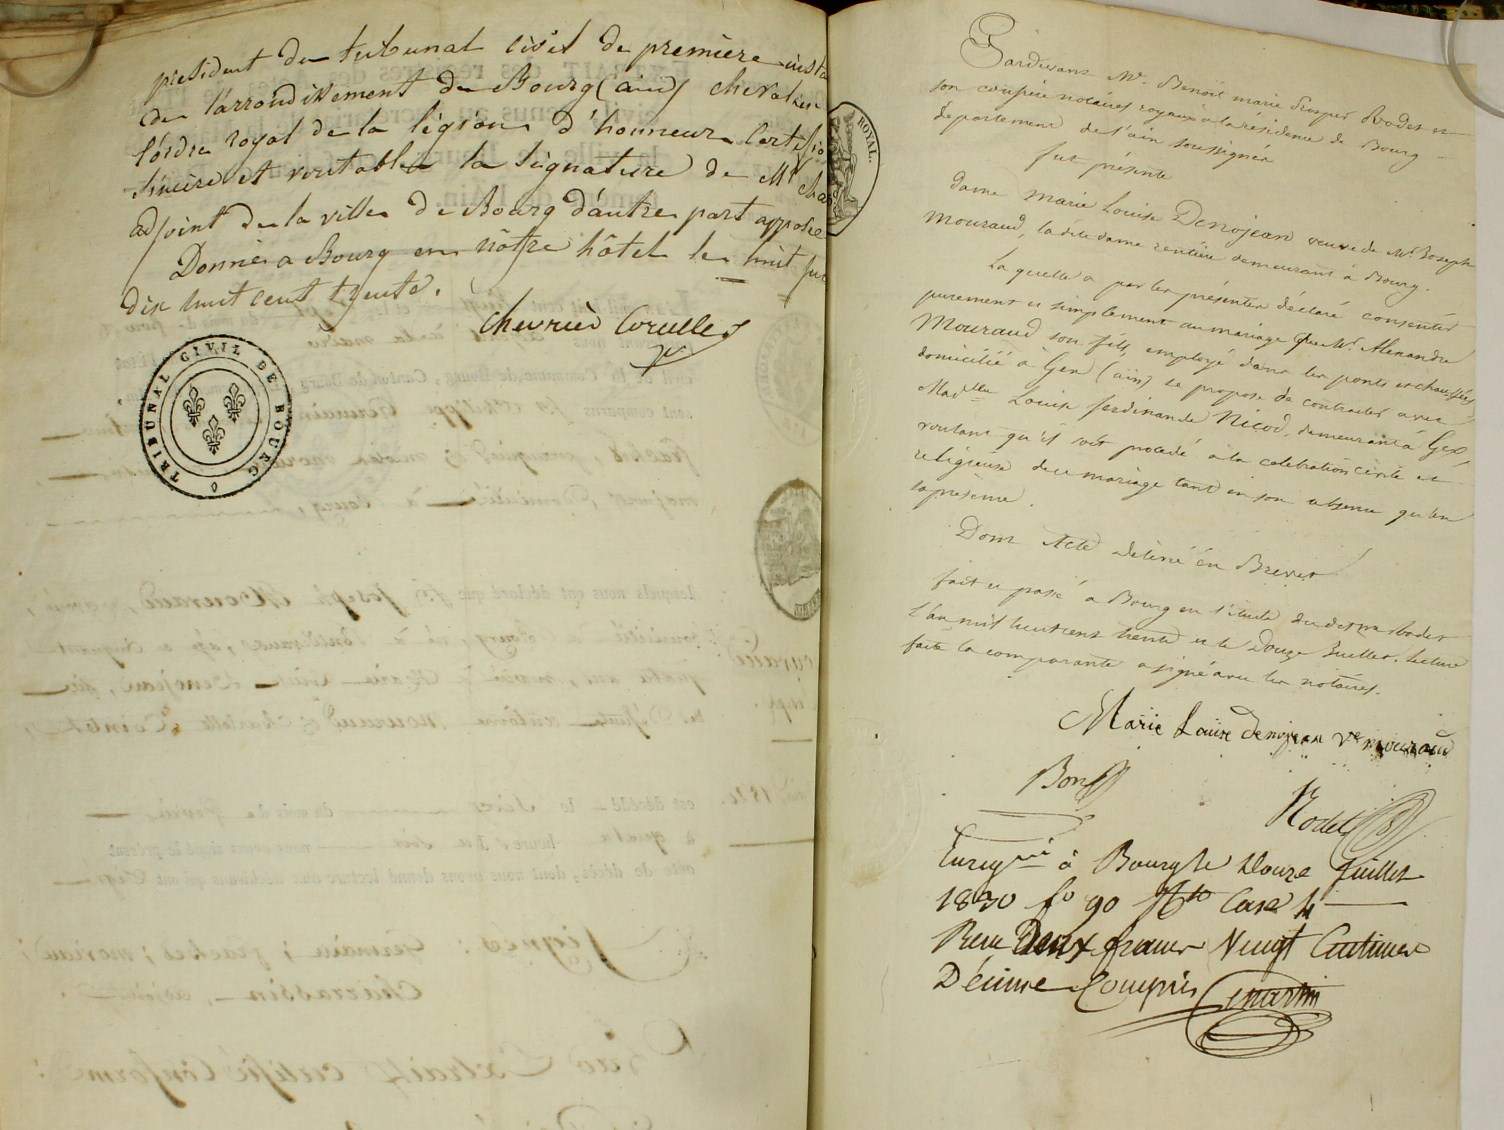 président du tribunal civil de première insta
de l'arrondissement de Bourg (ain) chevalier
l'ordre royal de la légion d'honneur Certifio
sincère et véritable la signature de Mr Cha
adjoint de la ville de Bourg d'autre part apposée
Donné a Bourg en nôtre hôtel le huit jui
dix huit cent trente.
TRIBUNAL CIVIL DE BOURG
ROYAL.
Pardevant Me Benoît marie Prosper Rodet et
son confrère notaires royaux à la résidence de Bourg
département de l'ain soussignés
fut présente
dame Marie Louise Denojean veuve de Mr Joseph
Mouraud, la dite dame rentière demeurant à Bourg.
Laquelle a par les présentes déclaré consentir
purement et simplement au mariage que Mr Alexandre
Mouraud son fils, employé dans les ponts et chaussées,
domicilié à Gex (ain) se propose de contracter avec
Madelle Louise ferdinande Nicod, demeurant à Gex,
voulant qu'il soit procédé à la célébration civile et
religieuse de ce mariage tant en son absence qu'en
sa présence.
Dont Acte délivré en Brevet
fait et passé à Bourg en l'étude du dit Me Rodet
l'an mil huit cent trente et le Douze Juillet. Lecture
faite la comparante a signé avec les notaires.
Marie Louise denojean ve mouraud
Rodet
Enregtré à Bourg le douze Juillet
1830 fo 90 Vto Case 4
Reçu Deux francs Vingt Centimes
Décime Compris Martin